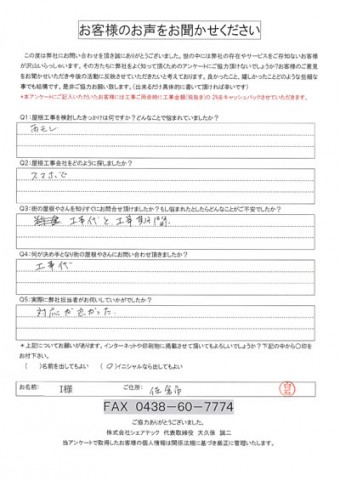 お客様のお声をお聞かせください
この度は弊社にお問い合わせを頂き誠にありがとうございました。世の中には弊社の存在やサービスをご存知ないお客様
が沢山いらっしゃいます。その方たちに弊社をよく知って頂くためのアンケートにご協力頂けないでしょうか?お客様のご意見
をお聞かせいただき今後の活動に反映させていただきたいと考えております。良かったこと、嬉しかったことなどのような些細な
事でも結構です。是非ご協力お願い致します。(出来るだけ具体的に書いて頂ければ幸いです)
*本アンケートにご記入いただいたお客様には工事ご用命時に工事金額(税抜き)の2%をキャッシュバックさせていただきます。
Q1:屋根工事を検討したきっかけは何ですか?どんなことで悩まれていましたか?
雨モレ
Q2:屋根工事会社をどのように探しましたか?
スマホで
Q3:街の屋根やさんを知りすぐにお問合せ頂けましたか?もし悩まれたとしたらどんなことがご不安でしたか?
工事代と、工事期間
Q4:何が決め手となり街の屋根やさんにお問い合わせ頂きましたか?
工事代
Q5:実際に弊社担当者がお伺いしていかがでしたか?
対応が良かった
* 上記についてお願いがあります。インターネットや印刷物に掲載させて頂いてもよろしいでしょうか?下記の中から○印を
お付け下さい。
( )名前を出してもよい (○)イニシャルなら出してもよい
お名前: I様 ご住所: 佐倉市
FAX 0438-60-7774
ご協力ありがとうございました。
株式会社シェアテック 代表取締役 大久保 誠二
当アンケートで取得したお客様の個人情報は関係法規に基づき厳正に管理いたします。